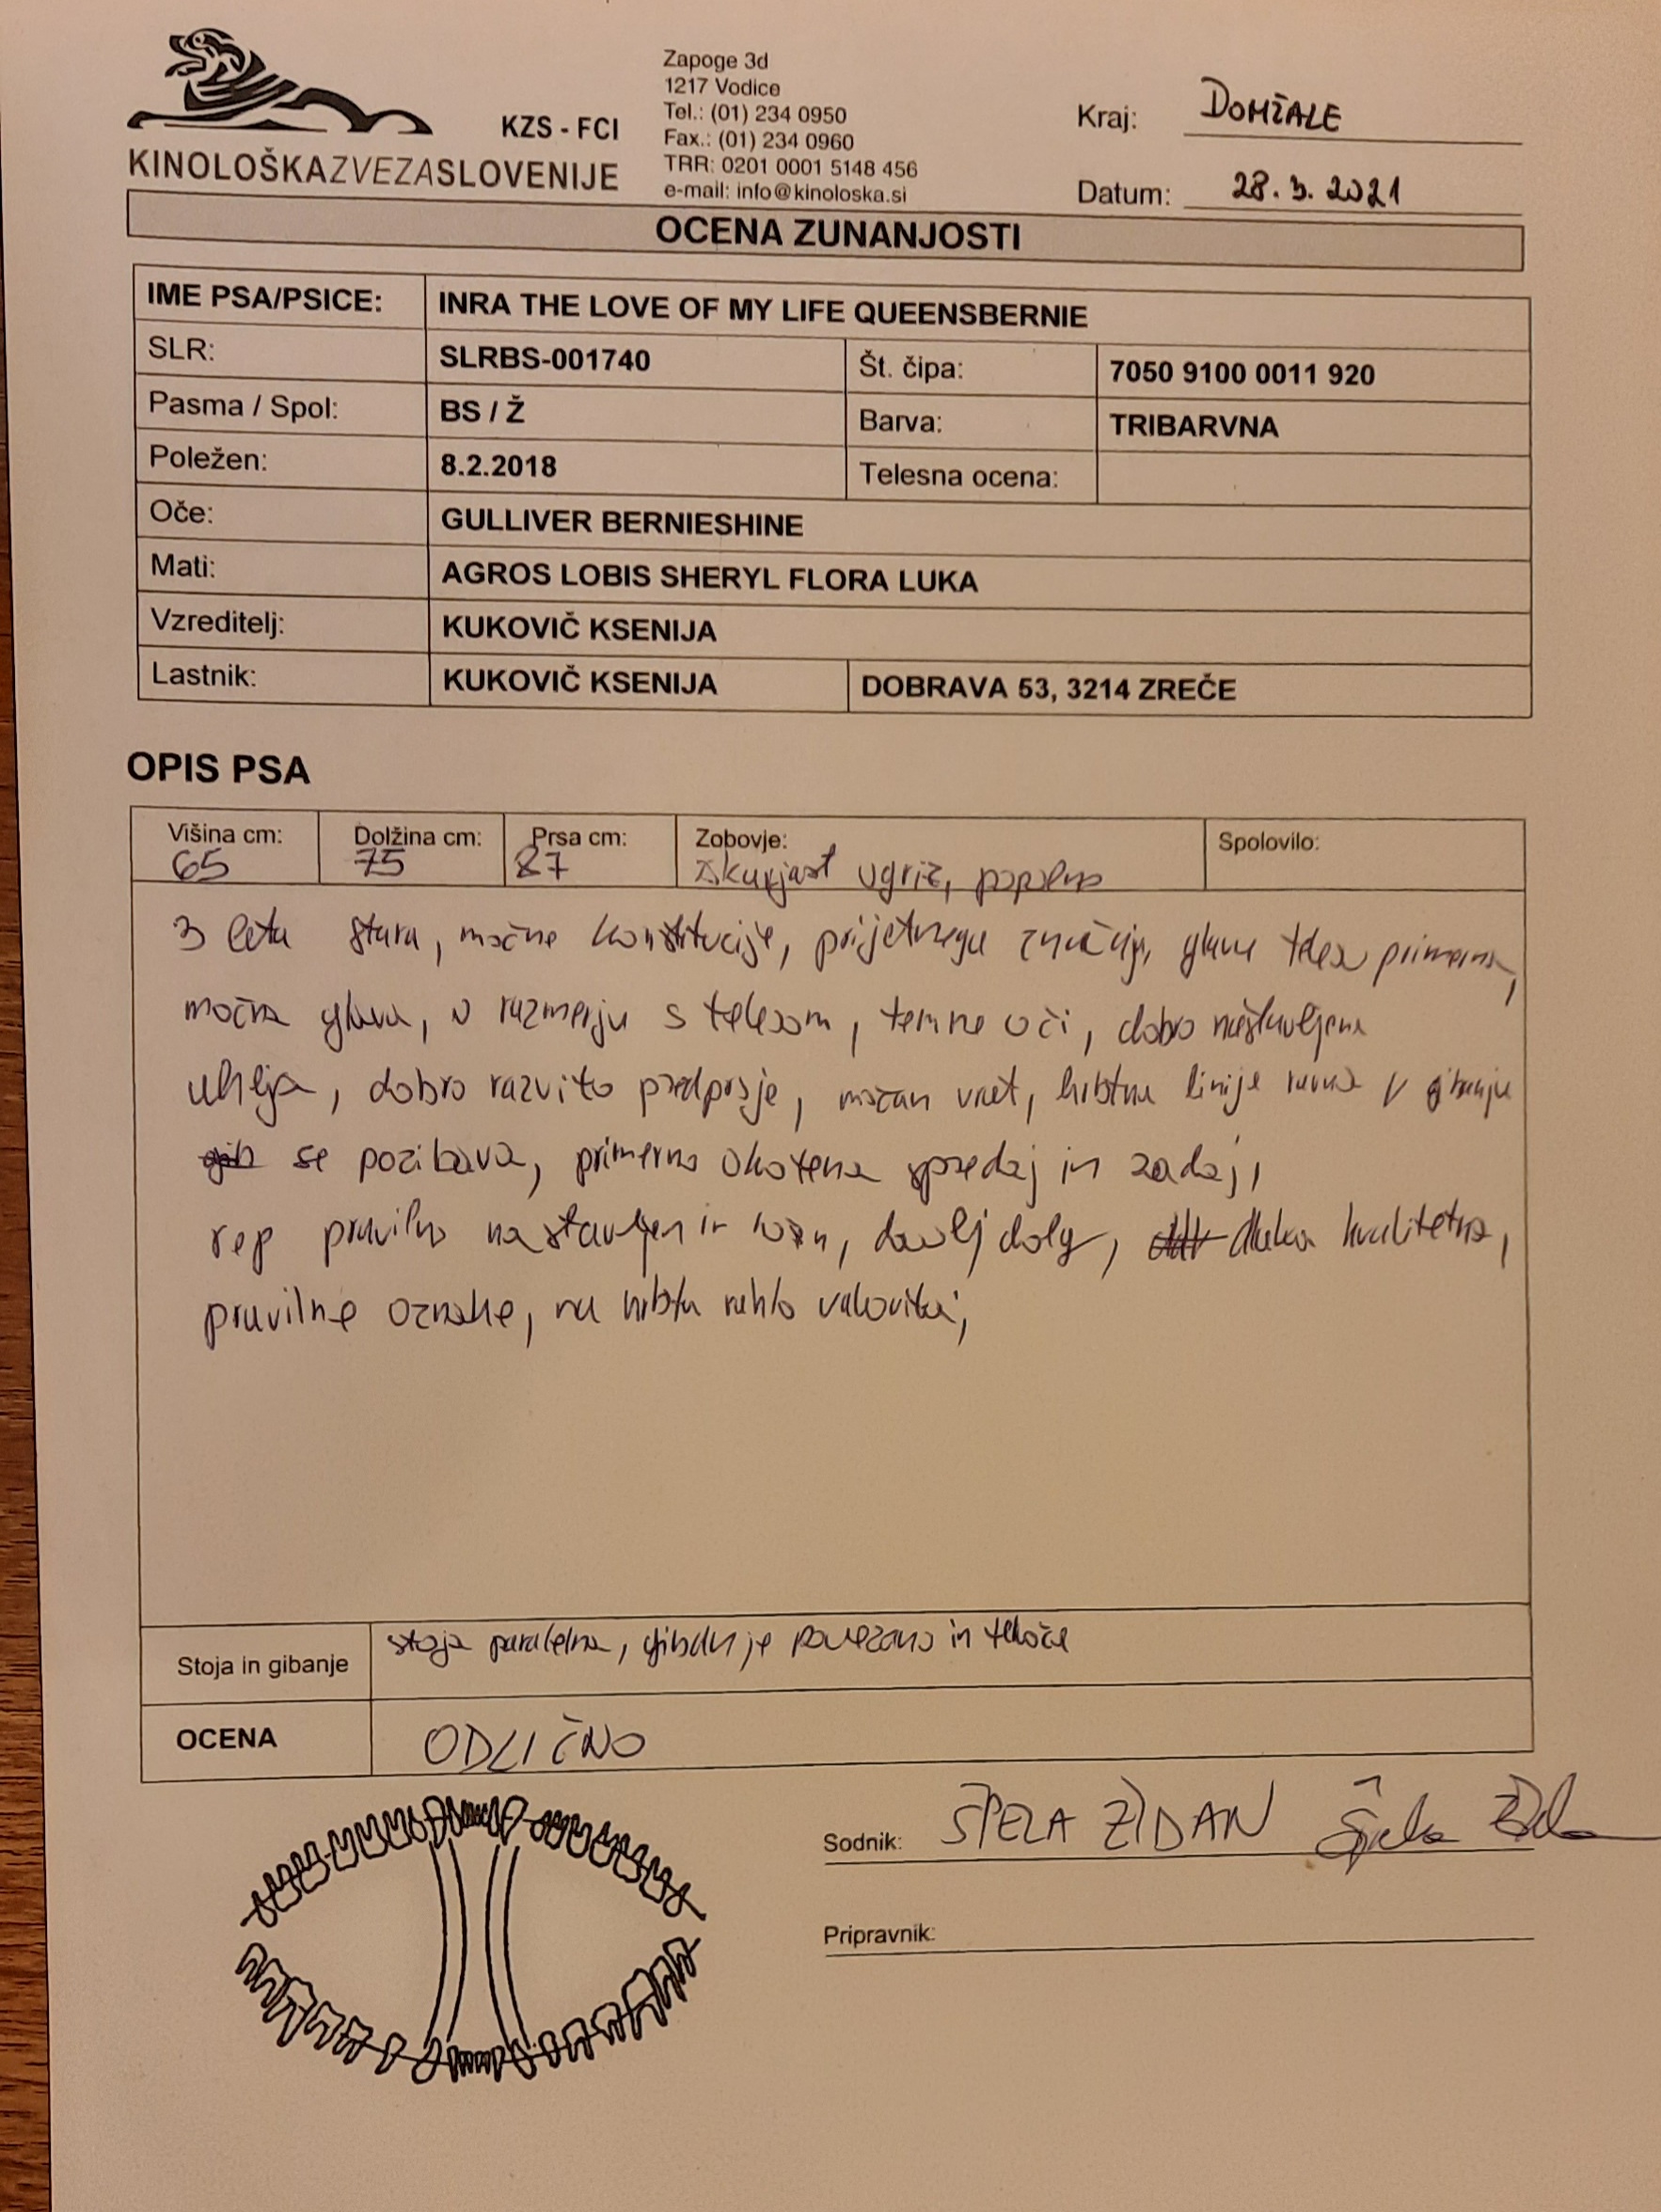 Zapoge 3d
1217 Vodice
Tel.: (01) 234 0950
Fax.: (01) 234 0960
TRR: 0201 0001 5148 456
e-mail: info@kinoloska.si
KZS - FCI
KINOLOŠKAZVEZASLOVENIJE
Kraj: DOMŽALE
Datum: 28. 3. 2021
OCENA ZUNANJOSTI
IME PSA/PSICE: INRA THE LOVE OF MY LIFE QUEENSBERNIE
SLR: SLRBS-001740 Št. čipa: 7050 9100 0011 920
Pasma / Spol: BS / Ž Barva: TRIBARVNA
Poležen: 8.2.2018 Telesna ocena:
Oče: GULLIVER BERNIESHINE
Mati: AGROS LOBIS SHERYL FLORA LUKA
Vzreditelj: KUKOVIČ KSENIJA
Lastnik: KUKOVIČ KSENIJA DOBRAVA 53, 3214 ZREČE
OPIS PSA
Višina cm: Dolžina cm: Prsa cm: Zobovje: Spolovilo:
65 75 87 škarjast ugriz, popolno
3 leta stara, močne konstitucije, prijetnega značaja, glave primerna,
močna glava, v razmerju s telesom, temne oči, dobro nastavljena
uhlja, dobro razvito predprsje, močan vrat, hrbtna linije ravna v gibanju
se pozibava, primerno okotena spredaj in zadaj,
rep pravilno nastavljen in nošen, dovolj dolg, dlaka kvalitetna,
pravilne oznake, na hrbtu rahlo valovita,
Stoja in gibanje stoja paralelna, gibanje povezano in tekoče
OCENA ODLIČNO
Sodnik: ŠPELA ŽIDAN
Pripravnik: